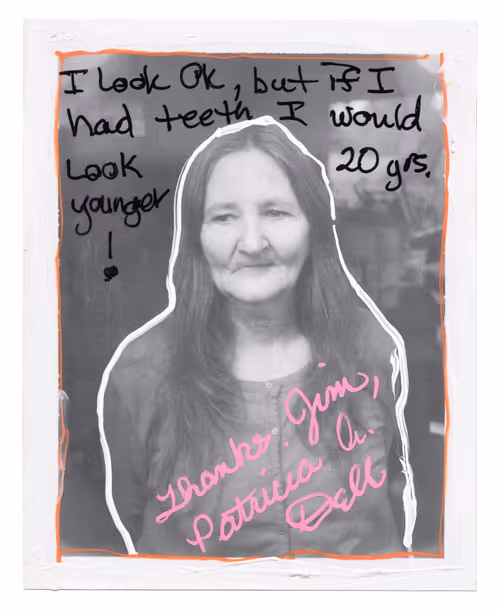 I Look OK, but if I
had teeth I would
Look 20 yrs.
younger
!
Thanks. Jim,
Patricia A.
Dell